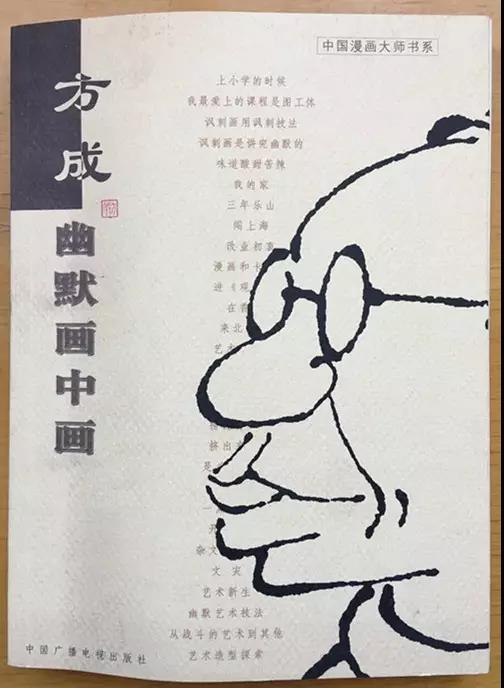 中国漫画大师书系
方成
幽默画中画
上小学的时候
我最爱上的课程是图工体
讽刺画用讽刺技法
讽刺画是讲究幽默的
味道酸甜苦辣
我的家
三年乐山
闯上海
改业初衷
漫画和卡
进《观
在香
来北
艺术
挤出
是
一
杂文
文实
艺术新生
幽默艺术技法
从战斗的艺术到其他
艺术造型探索
中国广播电视出版社